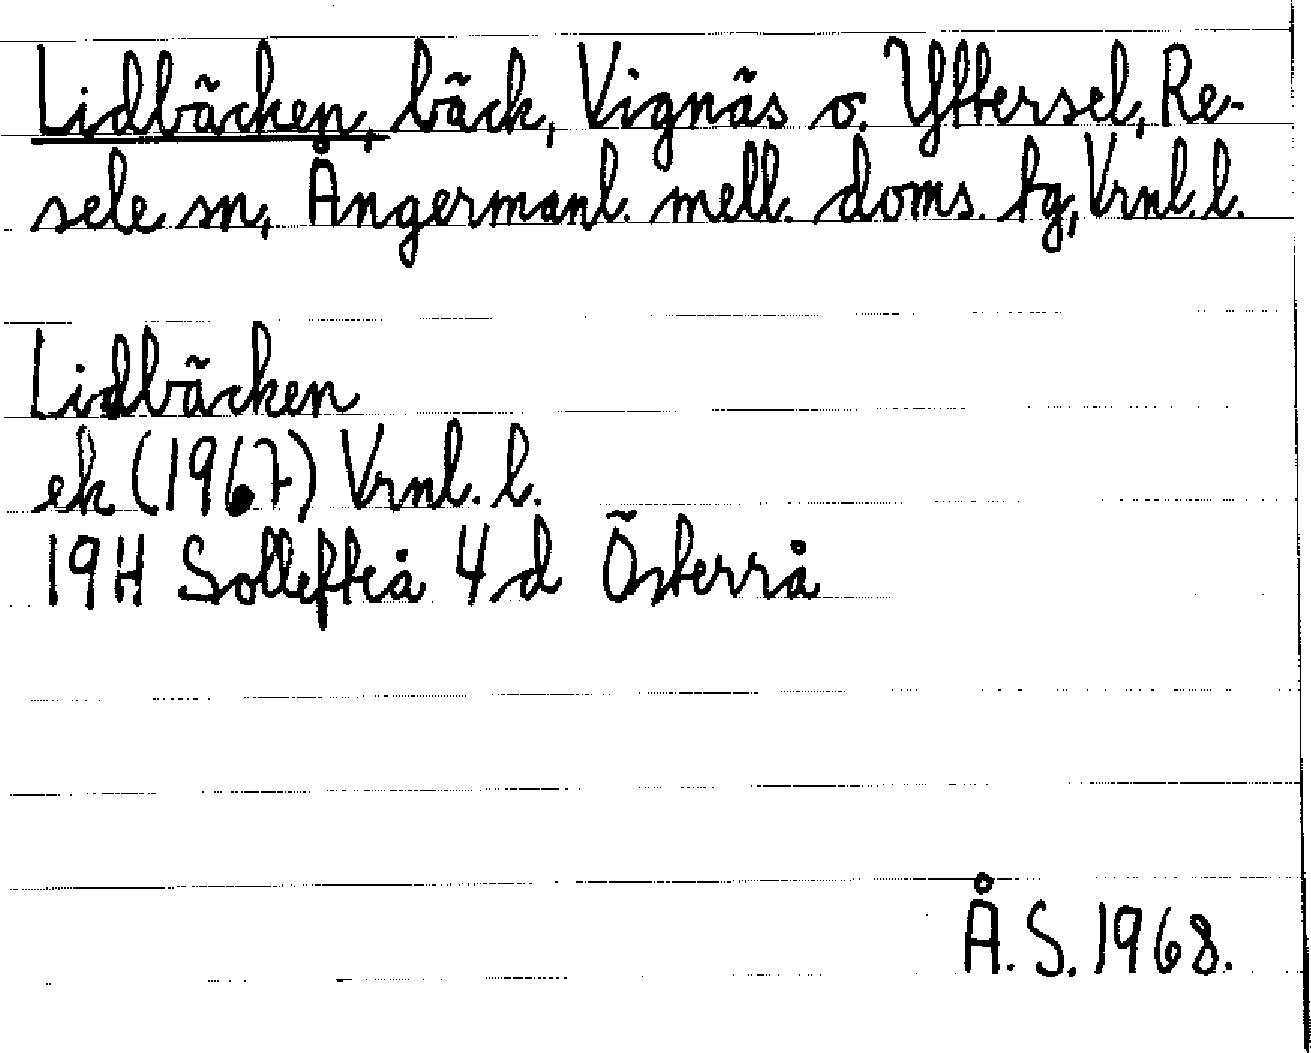 Lidbäcken, bäck, Vignäs o. Yttersel, Re-
sele sn, Ångermanl. mell. doms. tg, Vrnl. l.
Lidbäcken
ek (1967) Vrnl. l.
19H Sollefteå 4d Österrå
Å. S. 1968.